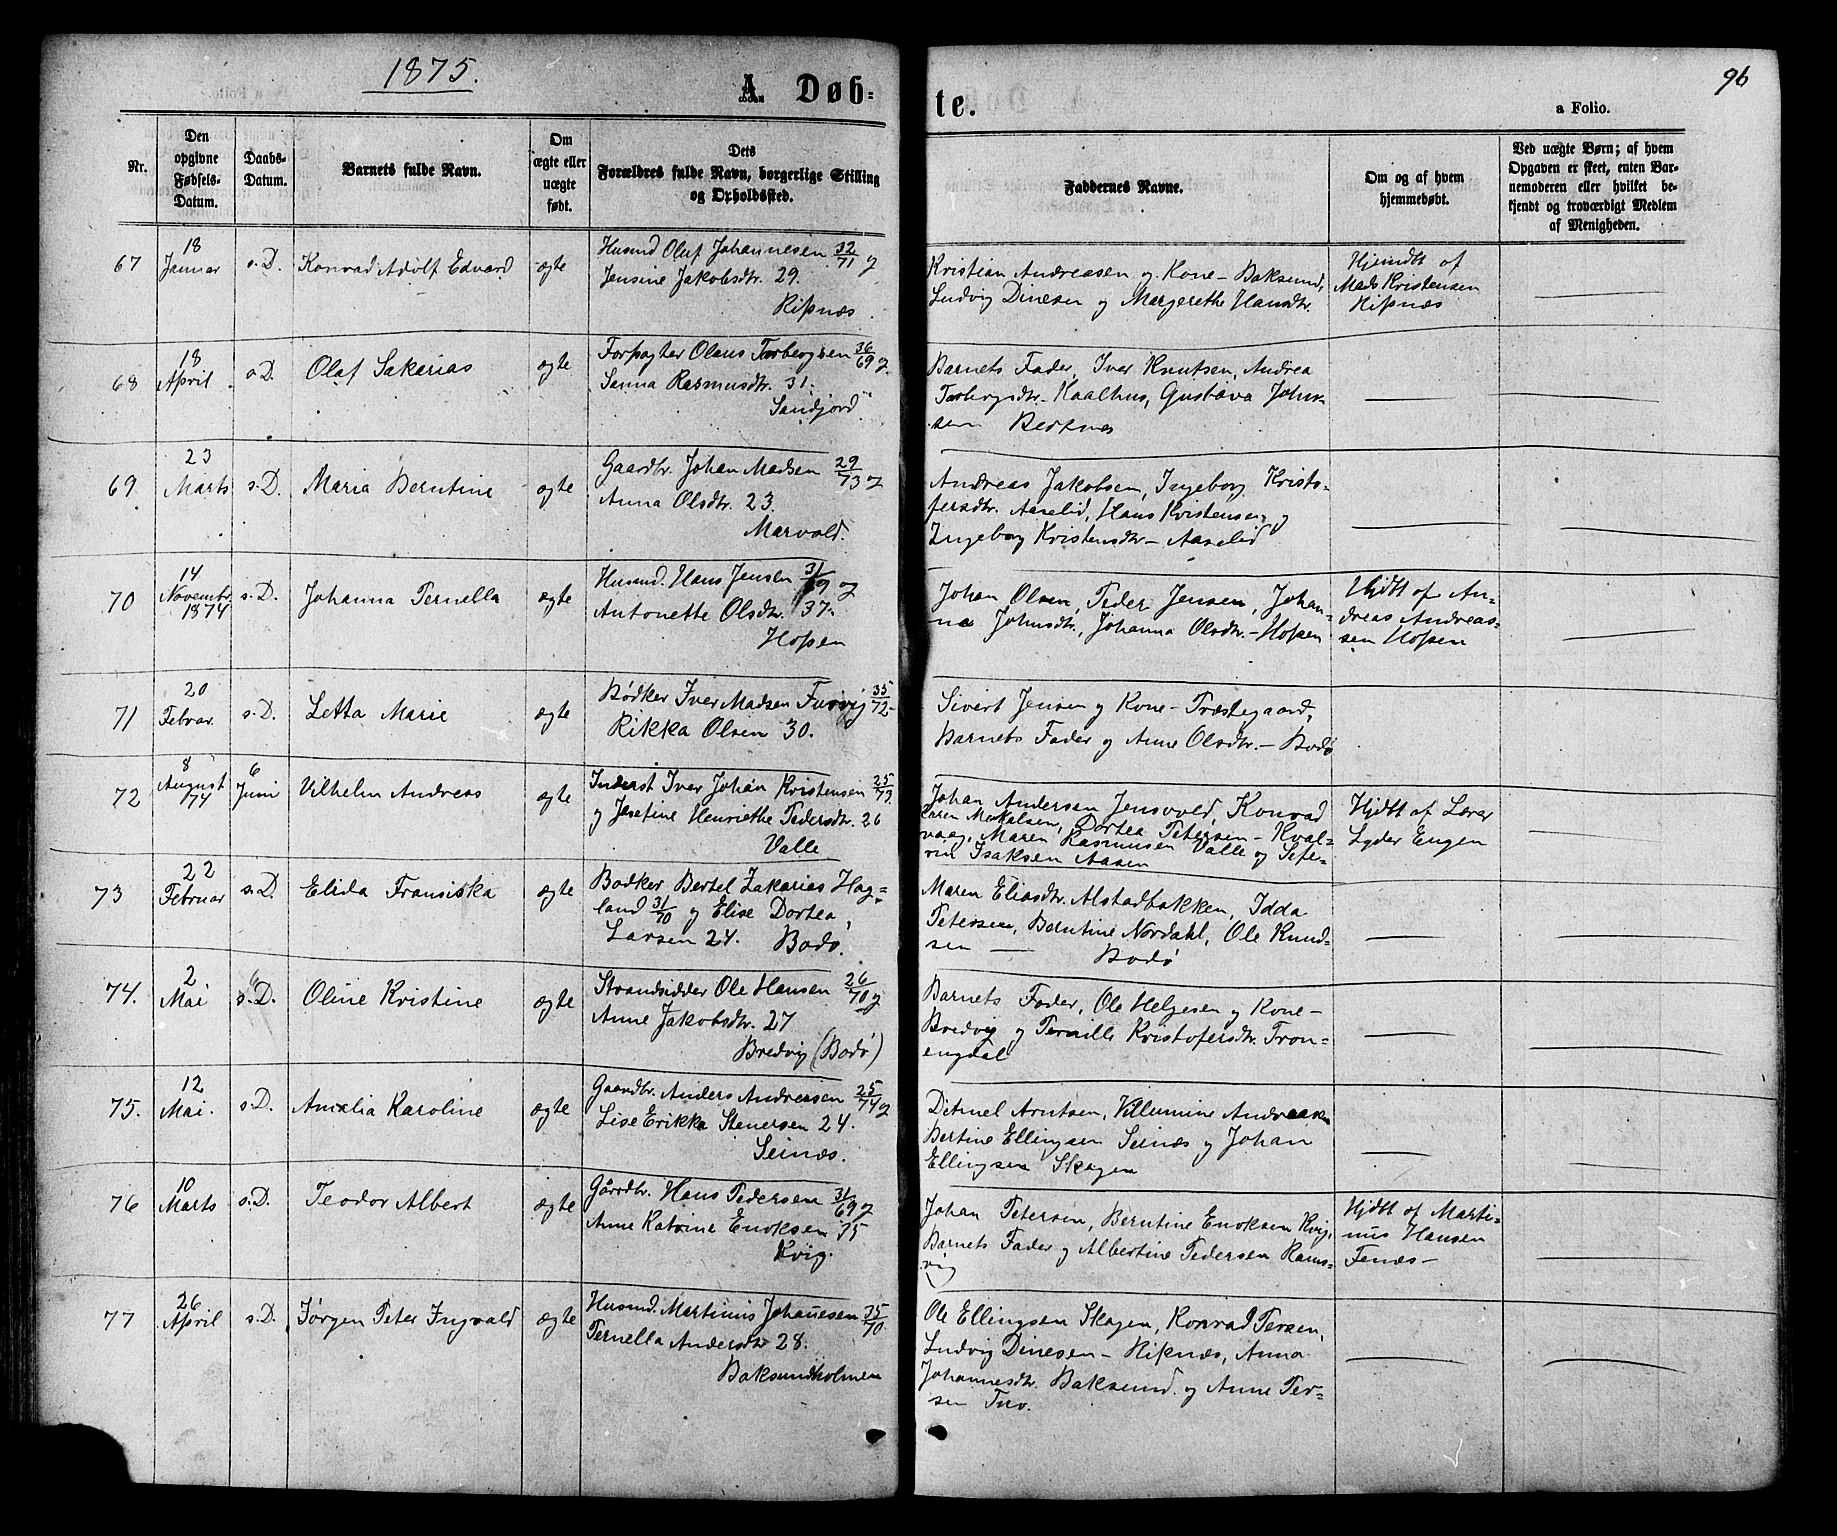 1875.
A. Døb-
te.
96
a Folio.
Nr.
Den opgivne Fødsels-Datum.
Daabs-Datum.
Barnets fulde Navn.
Om ægte eller uægte født.
Dets Forældres fulde Navn, borgerlige Stilling og Opholdssted.
Faddernes Navne.
Om og af hvem hjemmedøbt.
Ved uægte Børn; af hvem Opgaven er skeet, enten Barnemoderen eller hvilket bekjendt og troværdigt Medlem af Menigheden.
67
18 Januar
s.D.
Konrad Adolf Edvard
ægte
Husmd Oluf Johannesen 32/71 og
Jensine Jakobsdtr. 29.
Ripnæs
Kristian Andreasen og Kone - Baksund,
Ludvig Dinesen og Margrethe Hansdtr.
Hjemdt af
Mads Kristensen
Ripnæs
68
18 April
s.D.
Olaf Sakarias
ægte
Forpagter Olaus Torbergsen 36/69 og
Sanna Rasmusdtr. 31.
Sandjord
Barnets Fader, Iver Knutsen, Andrea
Torbergsdtr. Kaalhus, Gustava John-
sen Bertnes
69
23 Marts
s.D.
Maria Berntine
ægte
Gaardbr. Johan Madsen 29/73 og
Anna Olsdtr. 23.
Marvold.
Andreas Jakobsen, Ingeborg Kristo-
fersdtr. Aaselid, Hans Kristensen og
Ingeborg Kristensdtr - Aaselid
70
14 Novembr 1874
s.D.
Johanna Pernella
ægte
Husmd. Hans Jensen 31/69 og
Antonette Olsdtr. 37.
Hopen
Johan Olsen, Peder Jensen, Johan-
na Johnsdtr., Johanna Olsdtr. - Hopen
Hjdtt af An-
dreas Andreas-
sen Hopen
71
20 Febuar.
s.D.
Letta Marie
ægte
Bødker Iver Madsen Furvig 35/72 -
Rikka Olsen 30.
Sivert Jensen og Kone - Præstegaard,
Barnets Fader og Anne Olsdtr. - Bodø
72
8 August 74
6 Juni
Vilhelm Andreas
ægte
Inderst Iver Johan Kristensen 25/73.
og Josefine Henriethe Pedersdtr. 26
Valle
Johan Andersen Jensvold, Konrad
Karen Mikalsen, Dortea Petersen - Kval-
vaag, Maren Rasmusen Valle og Sefe-
rin Isaksen Aasen
Hjdtt af Lærer
Lyder Engen
73
22 Februar
s.D.
Elida Fransiska
ægte
Bødker Bertel Zakarias Hag-
land 31/70 og Elise Dortea
Larsen 24. Bodø.
Maren Eliasdtr. Alstadbakken, Idda
Petersen, Berntine Nordahl, Ole Knud-
sen — Bodø
74.
2 Mai
s.D.
Oline Kristine
ægte
Strandsidder Ole Hansen 26/70 og
Anne Jakobsdtr. 27
Bredvig (Bodø)
Barnets Fader, Ole Helgesen og Kone -
Bredvig og Pernille Kristofersdtr. Tron-
engdal
75.
12 Mai.
s.D.
Amalia Karoline
ægte
Gaardbr. Anders Andreasen 25/74 og
Lise Erikka Stenersen 24.
Seinæs.
Ditmel Arntsen, Villumine Andreasen
Bertine Ellingsen Seinæs og Johan
Ellingsen Skagen
76
10 Marts
s.D.
Teodor Albert
ægte
Gårdbr. Hans Pedersen 31/69 og
Anne Katrine Enoksen 35
Kvig.
Johan Petersen, Berntine Enoksen Kvig,
Barnets Fader og Albertine Pedersen Rams-
vig
Hjdtt af Marti-
nus Hansen
Fenæs -
77
26 April
s.D.
Jørgen Peter Ingvald
ægte
Husmd. Martinus Johannesen 35/70
Pernella Andersdtr 28.
Baksundholmen
Ole Ellingsen Skagen, Konrad Persen,
Ludvig Dinesen - Ripnæs, Anna
Johannesdtr. Baksund. og Anne Per-
sen Tuv.